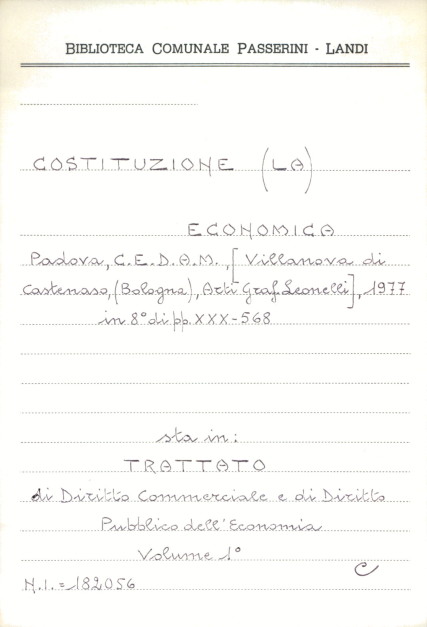 BIBLIOTECA COMUNALE PASSERINI - LANDI
COSTITUZIONE (LA)
ECONOMICA
Padova, C.E.D.A.M., [Villanova di
Castenaso, (Bologna), Arti Graf. Leonelli], 1977
in 8° di pp. XXX-568
sta in:
TRATTATO
di Diritto Commerciale e di Diritto
Pubblico dell'Economia
Volume 1°
C
N.I. = 182056